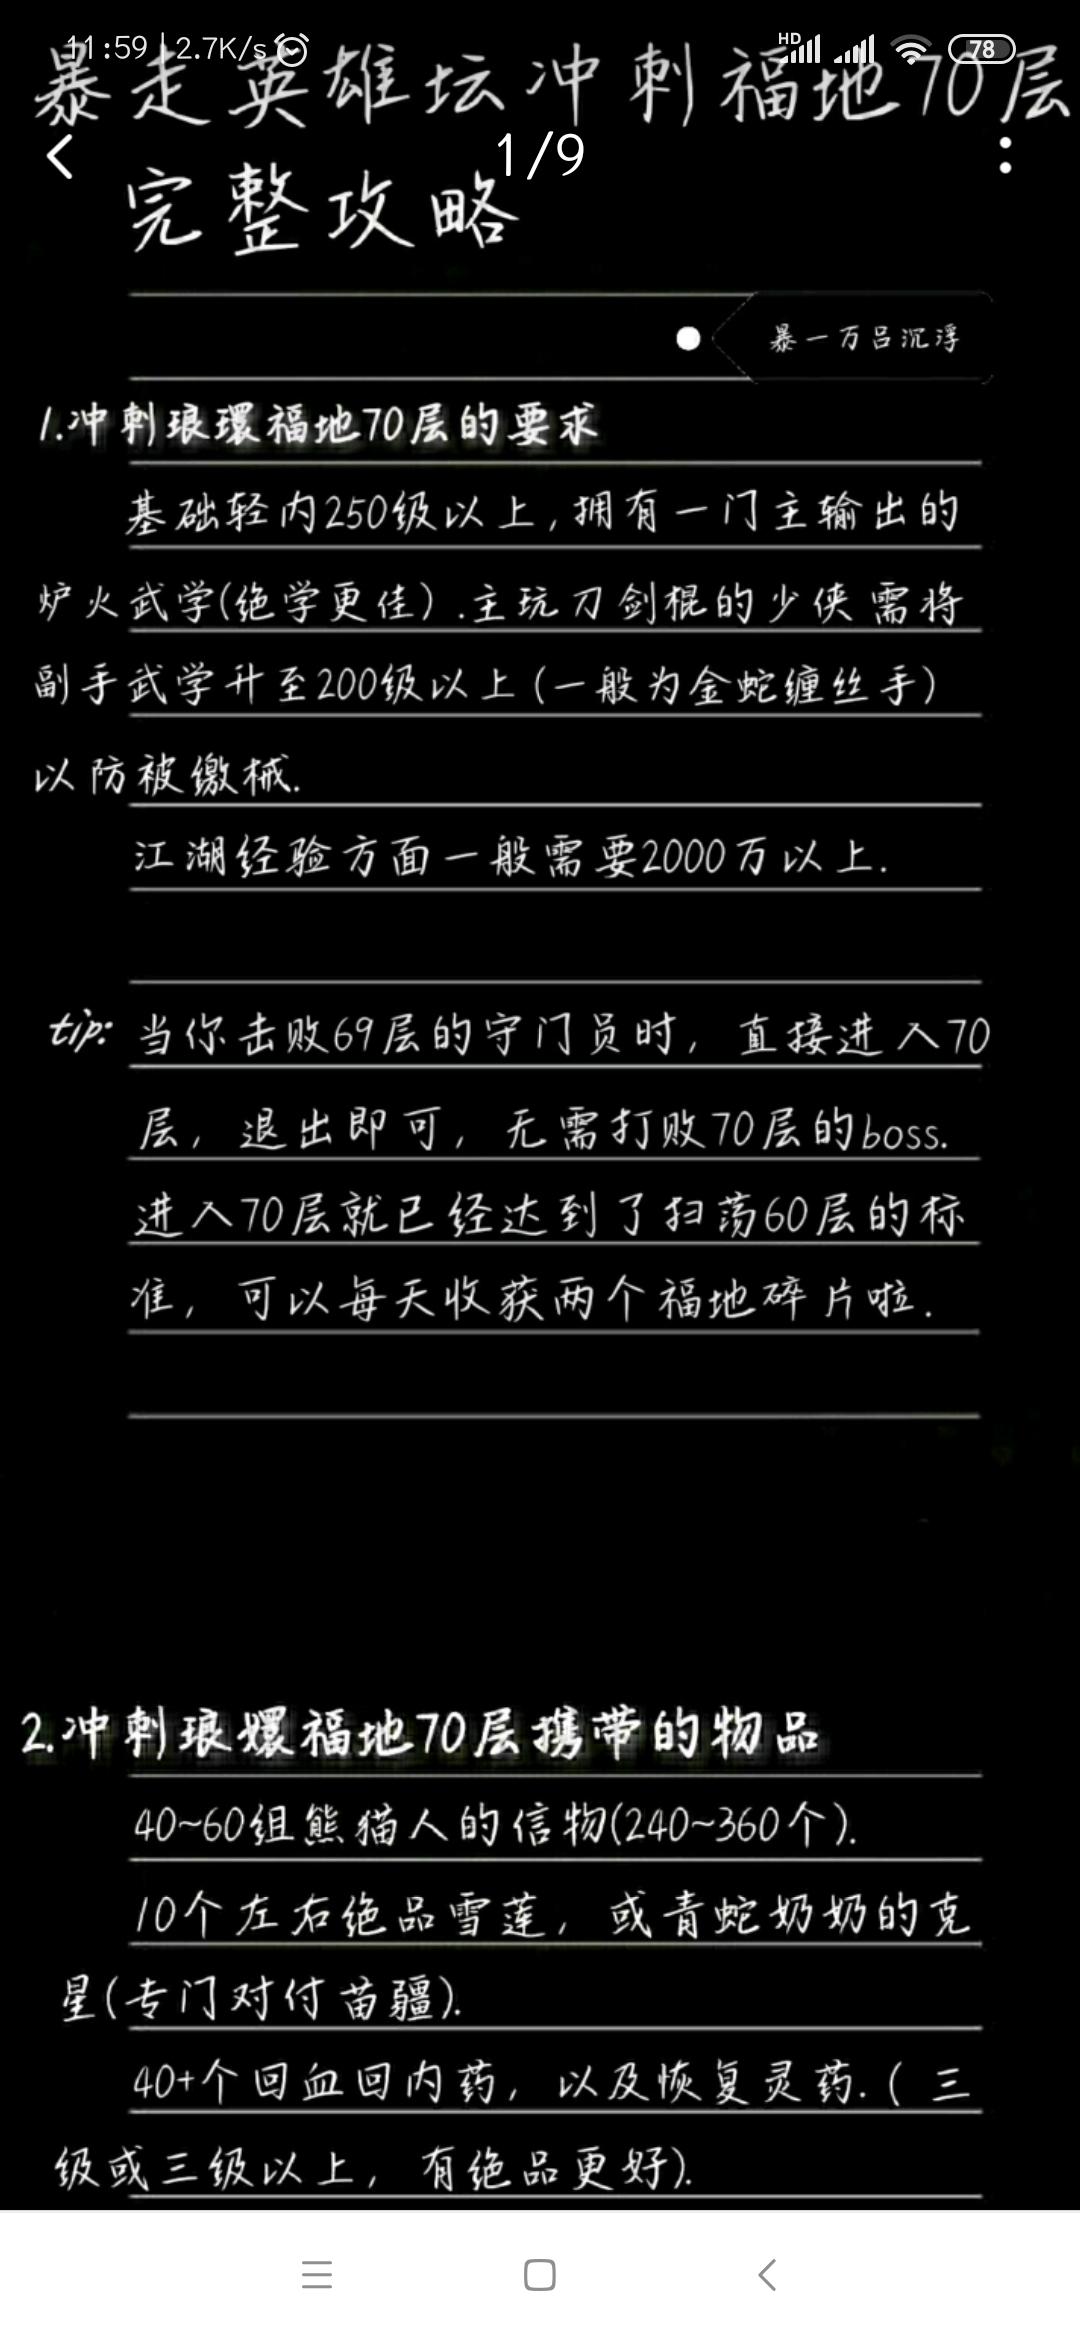 11:59 | 2.7K/s
HD
78
暴走英雄坛冲刺福地70层
1/9
完整攻略
暴一万吕沉浮
1.冲刺琅環福地70层的要求
基础轻内250级以上,拥有一门主输出的
炉火武学(绝学更佳).主玩刀剑棍的少侠需将
副手武学升至200级以上(一般为金蛇缠丝手)
以防被缴械.
江湖经验方面一般需要2000万以上.
tip:当你击败69层的守门员时,直接进入70
层,退出即可,无需打败70层的boss.
进入70层就已经达到了扫荡60层的标
准,可以每天收获两个福地碎片啦.
2.冲刺琅嬛福地70层携带的物品
40~60组熊猫人的信物(240~360个).
10个左右绝品雪莲,或青蛇奶奶的克
星(专门对付苗疆).
40+个回血回内药,以及恢复灵药.(三
级或三级以上,有绝品更好).